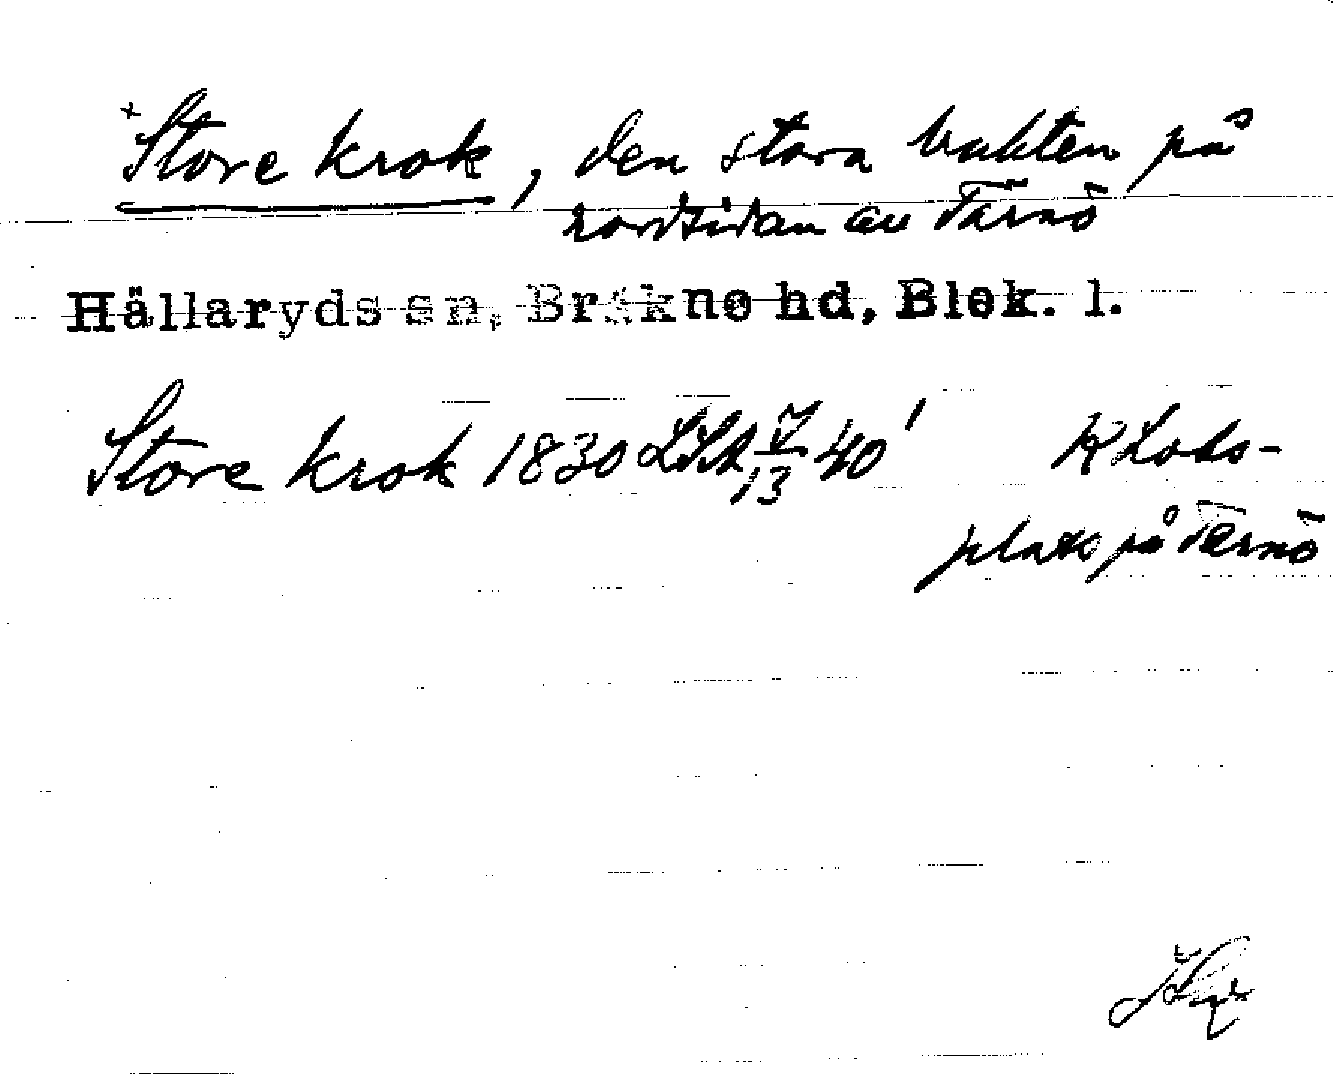 +Store krok, den stora bukten på
nordsidan av Tärnö
Hällaryds sn, Bräkne hd, Blek. l.
Store krok 1830 LSA J/13 40¹ K Lots-
plats på Tärnö